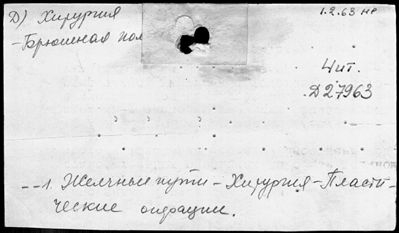 Д) Хирургия
1.2.63 нр
-Брюшная пол
Чит.
Д27963
--1. Желчные пути - Хирургия - Пласти-
ческие операции.